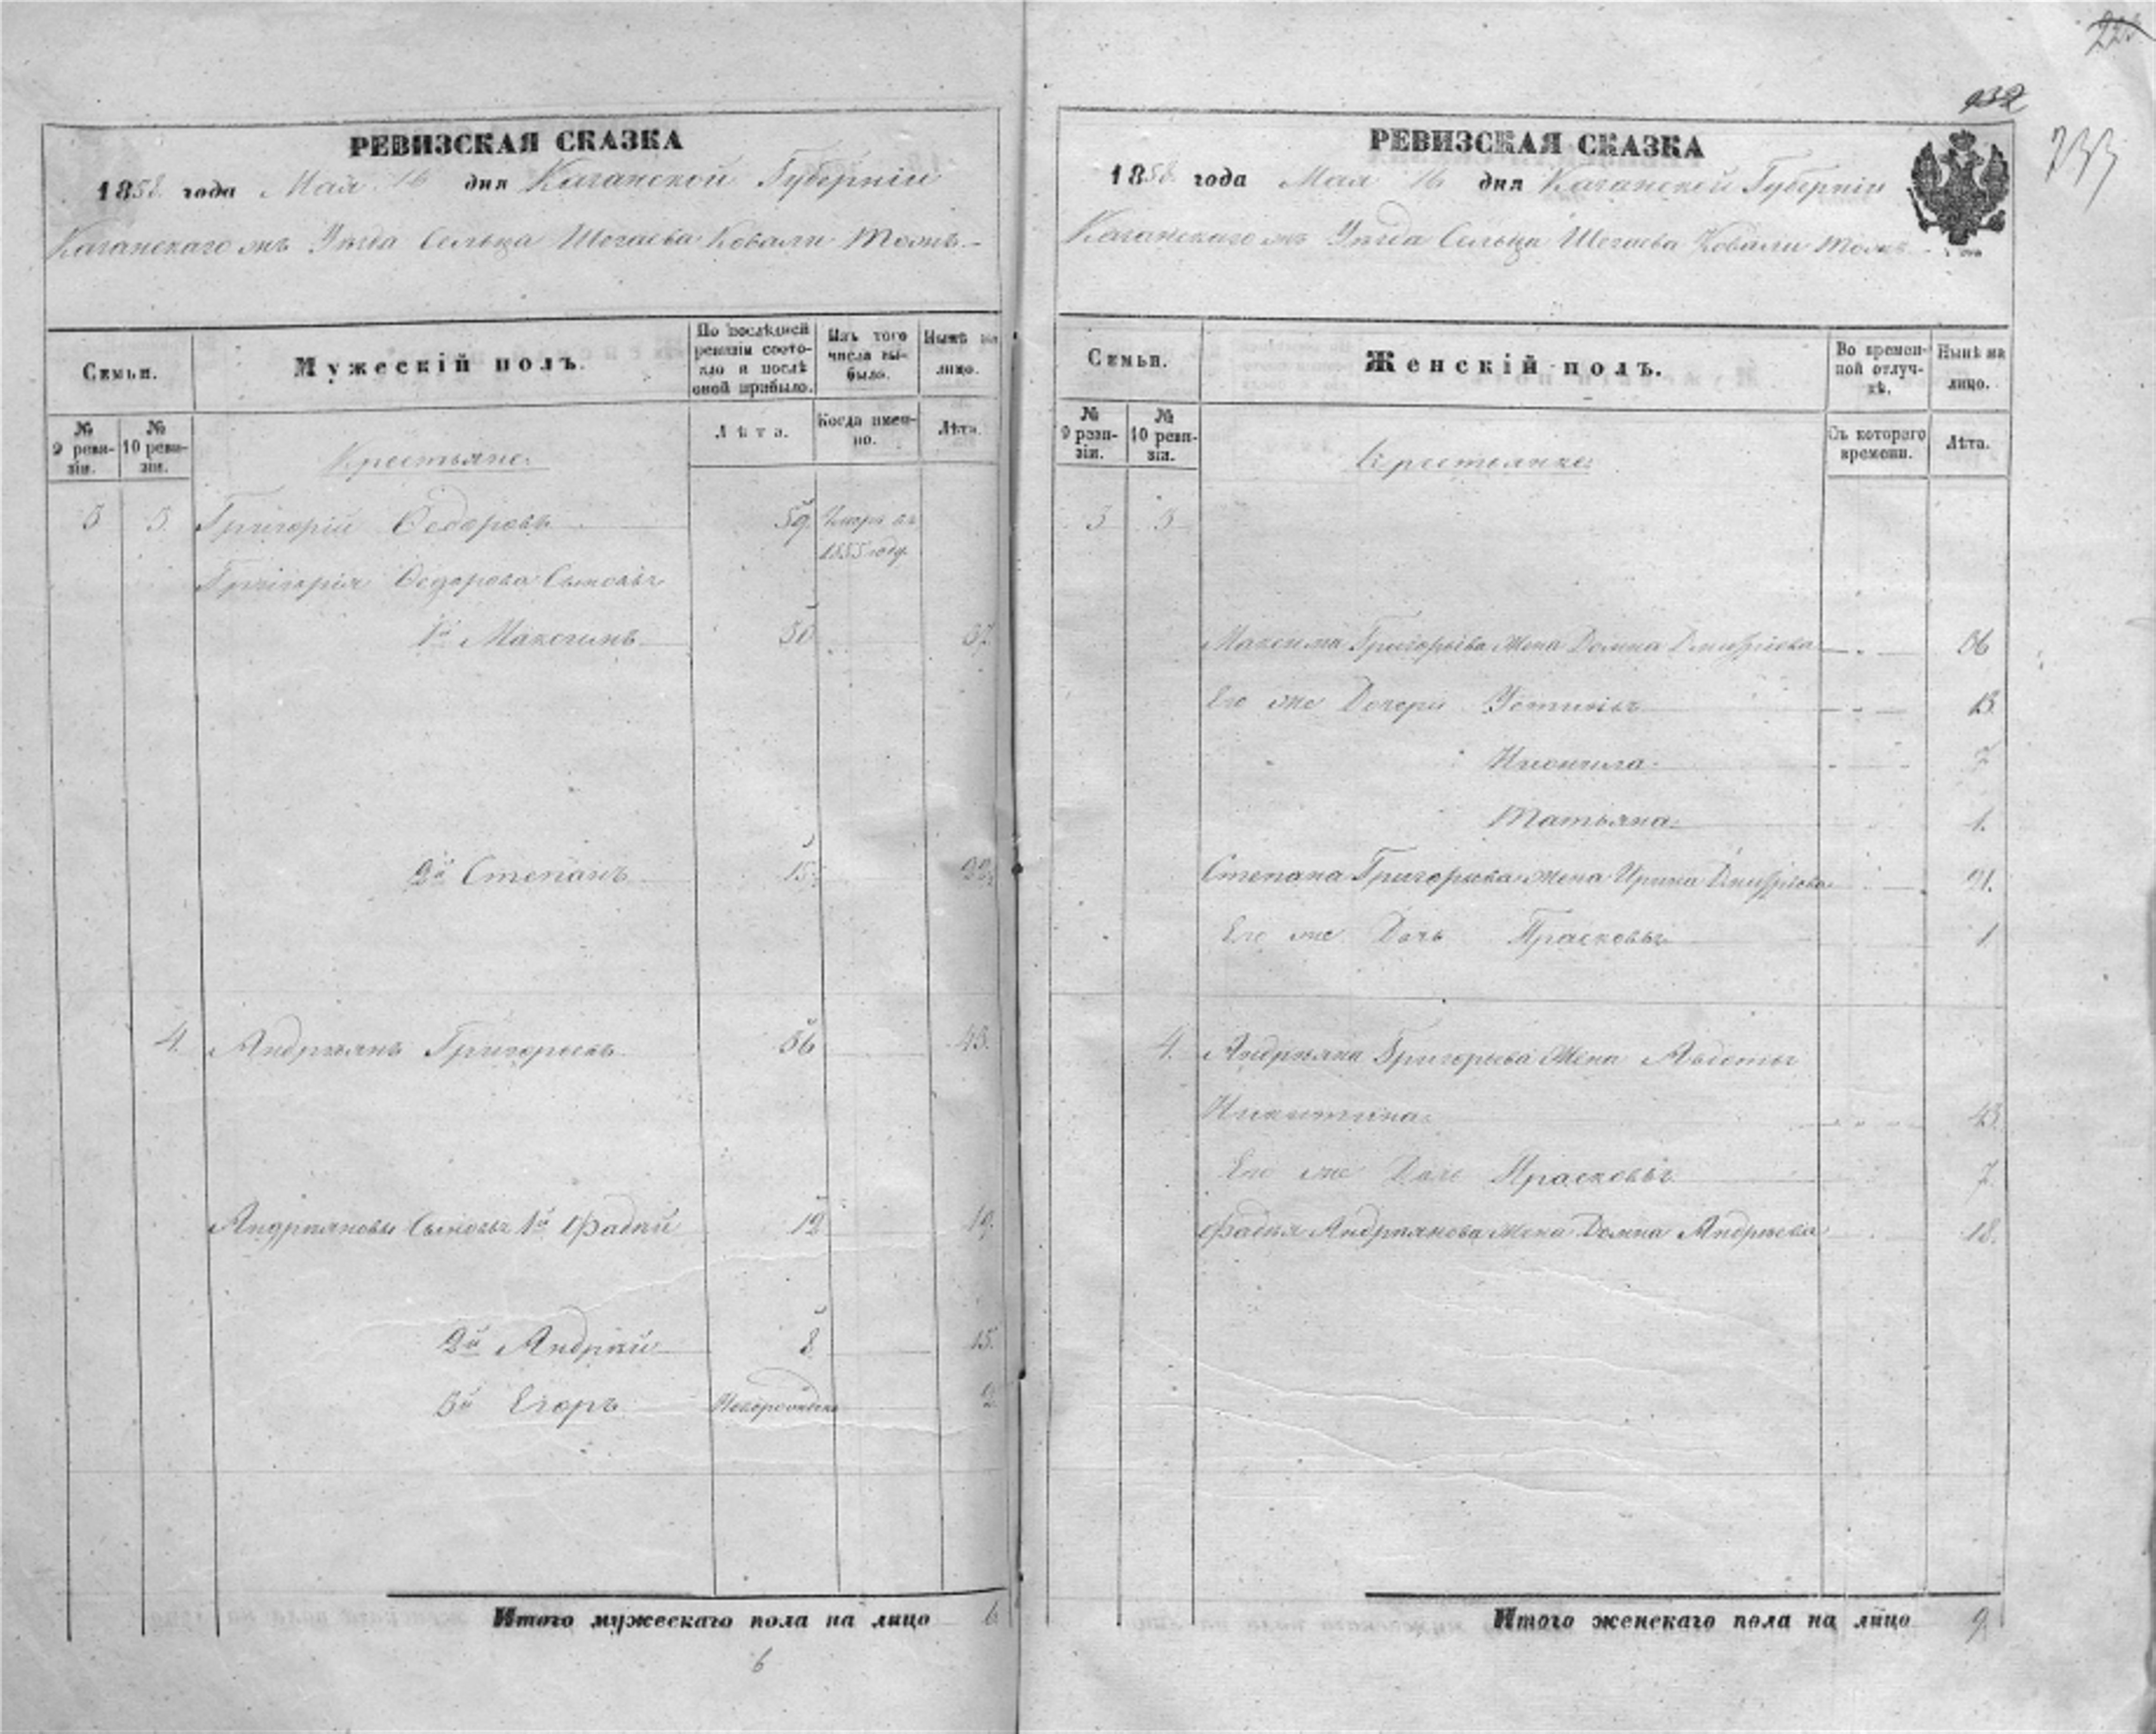 РЕВИЗСКАЯ СКАЗКА
1858 года Мая 16 дня Казанской Губерніи
Казанскаго Уѣзда Сельца Шегаева Ковали тожъ
Семьи.
Мужескій полъ.
По послѣдней ревизіи состояло и послѣ оной прибыло.
Изъ того числа выбыло.
Нынѣ на лицо.
№ 9 ревизіи.
№ 10 ревизіи.
Крестьяне.
Лѣта.
Когда именно.
Лѣта.
3 3. Григорій Ѳедоровъ 59. Умеръ въ
1855 году.
Григорія Ѳедорова Сыновья
1й Максимъ 30 37.
2й Степанъ 15 22.
4. Андріянъ Григорьевъ 36 43.
Андріяновы Сыновья 1й Фадѣй 12 19.
2й Андрѣй 8 15.
3й Егоръ Новорожденъ 2.
Итого мужескаго пола на лицо 6
6
232
233
РЕВИЗСКАЯ СКАЗКА
1858 года Мая 16 дня Казанской Губерніи
Казанскаго Уѣзда Сельца Шегаева Ковали тожъ
Семьи.
Женскій полъ.
Во временной отлучкѣ.
Нынѣ на лицо.
№ 9 ревизіи.
№ 10 ревизіи.
Крестьянки
Съ котораго времени.
Лѣта.
3 3
Максима Григорьева Жена Домна Дмитріева 36
Его же Дочери Устинья 13.
Неонила 7
Татьяна 1.
Степана Григорьева Жена Ирина Дмитріева 21.
Его же Дочь Прасковья 1.
4. Андріяна Григорьева Жена Авдотья
Никитина 43.
Его же Дочь Прасковья 7
Фадѣя Андріянова Жена Домна Андрѣева 18.
Итого женскаго пола на лицо 9.